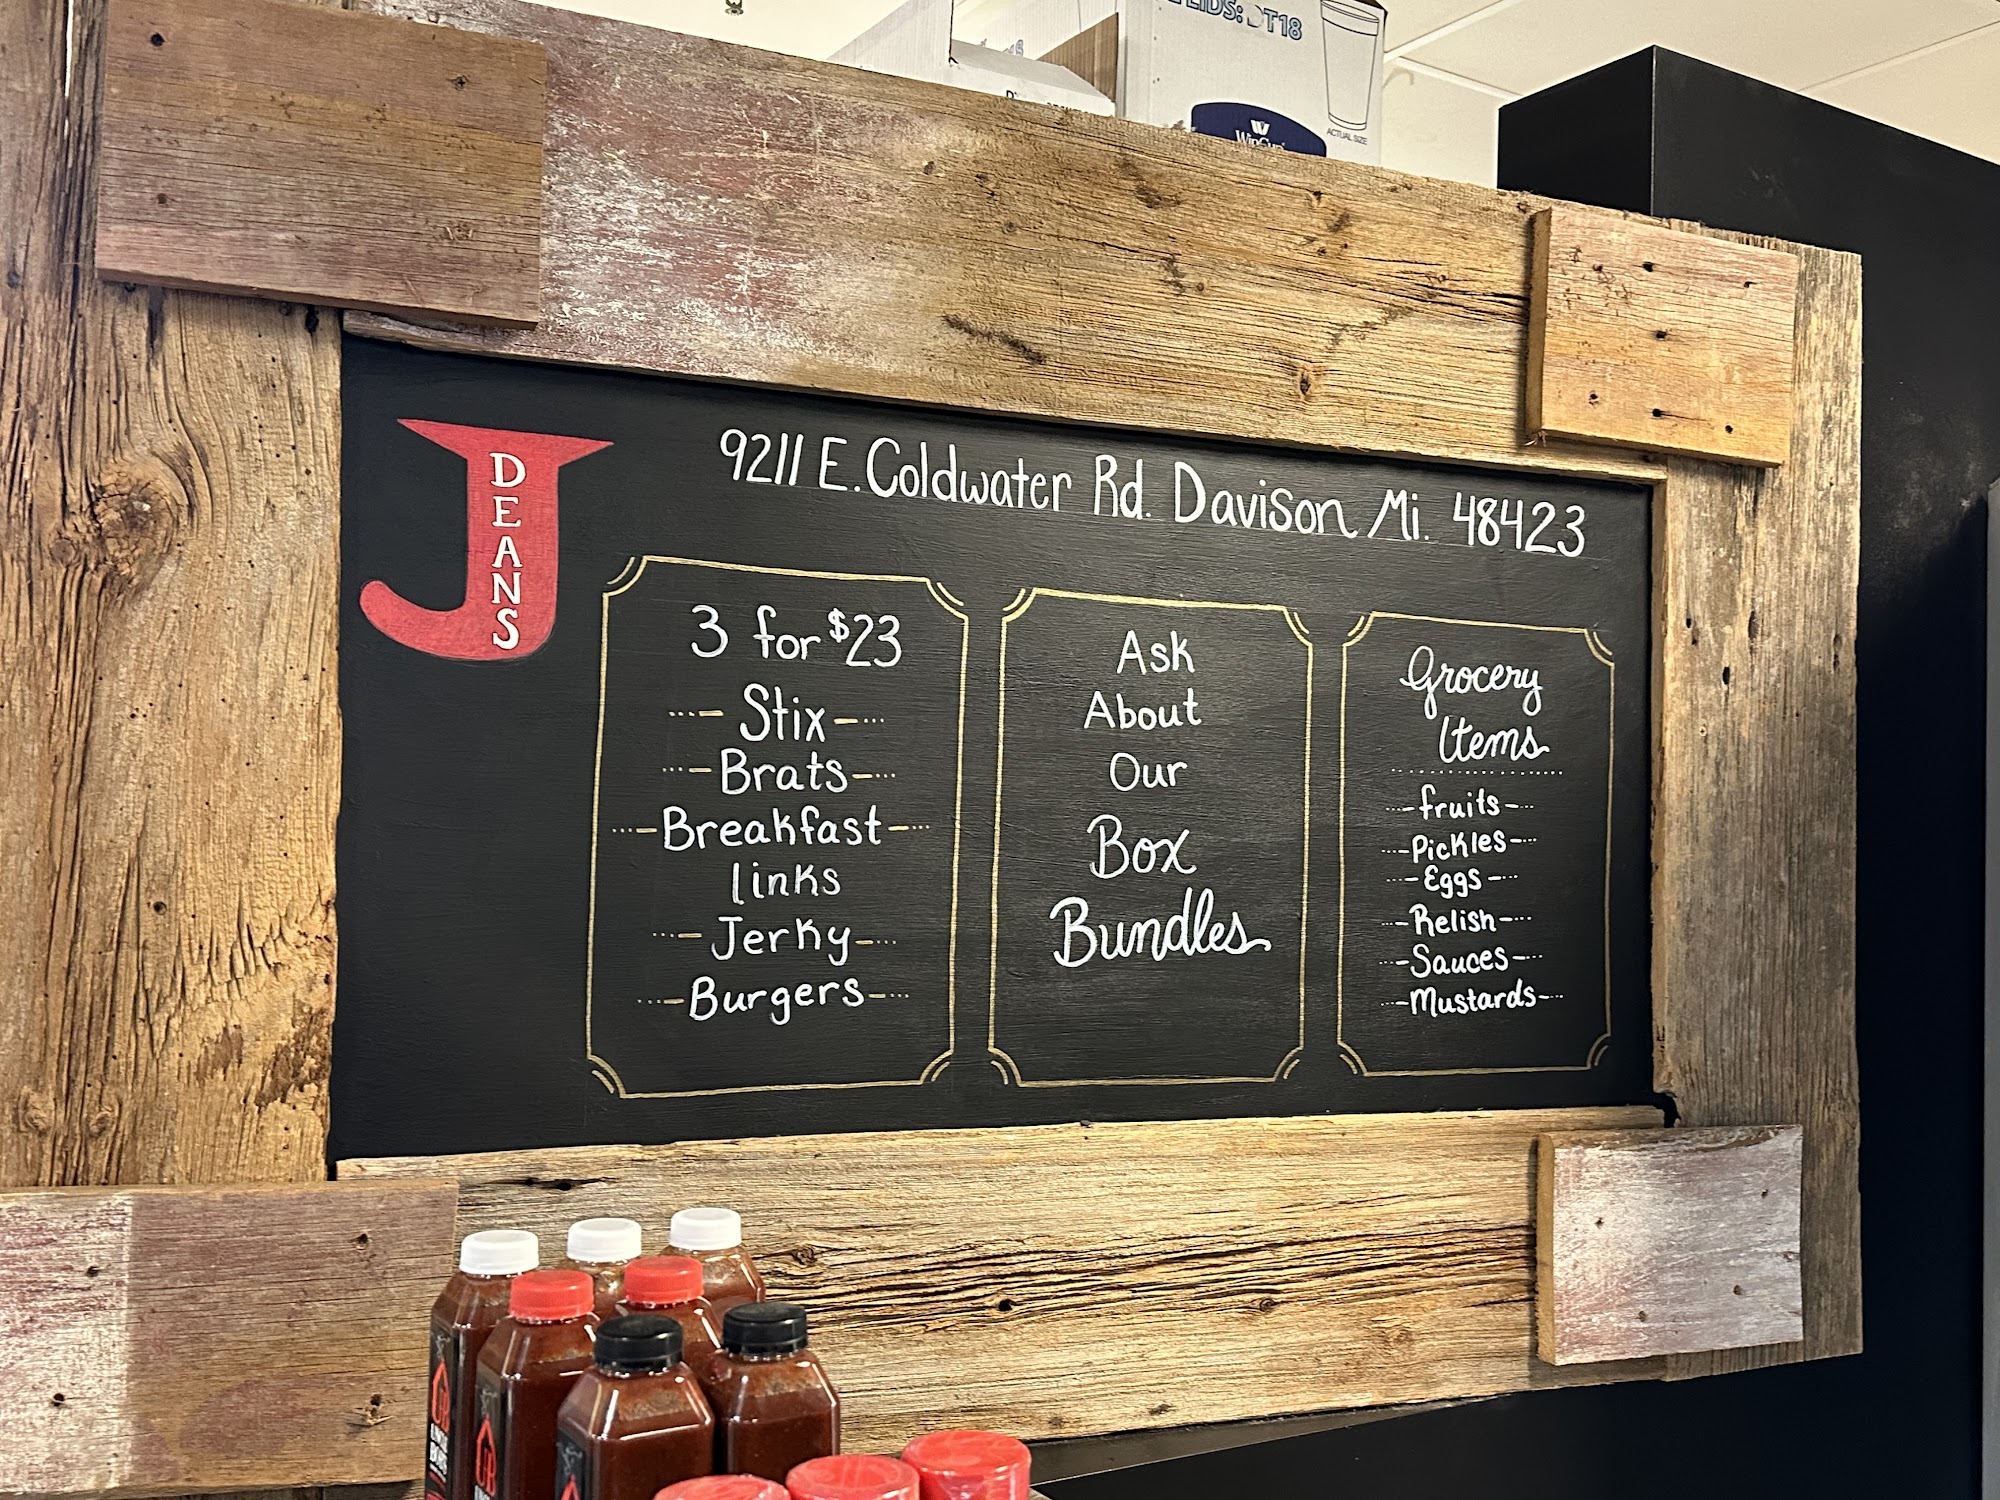 LIDS: DT18
WinCup
ACTUAL SIZE
J
DEANS
9211 E. Coldwater Rd. Davison Mi. 48423
3 for $23
Stix
Brats
Breakfast
links
Jerky
Burgers
Ask
About
Our
Box
Bundles
Grocery
Items
fruits
Pickles
Eggs
Relish
Sauces
Mustards